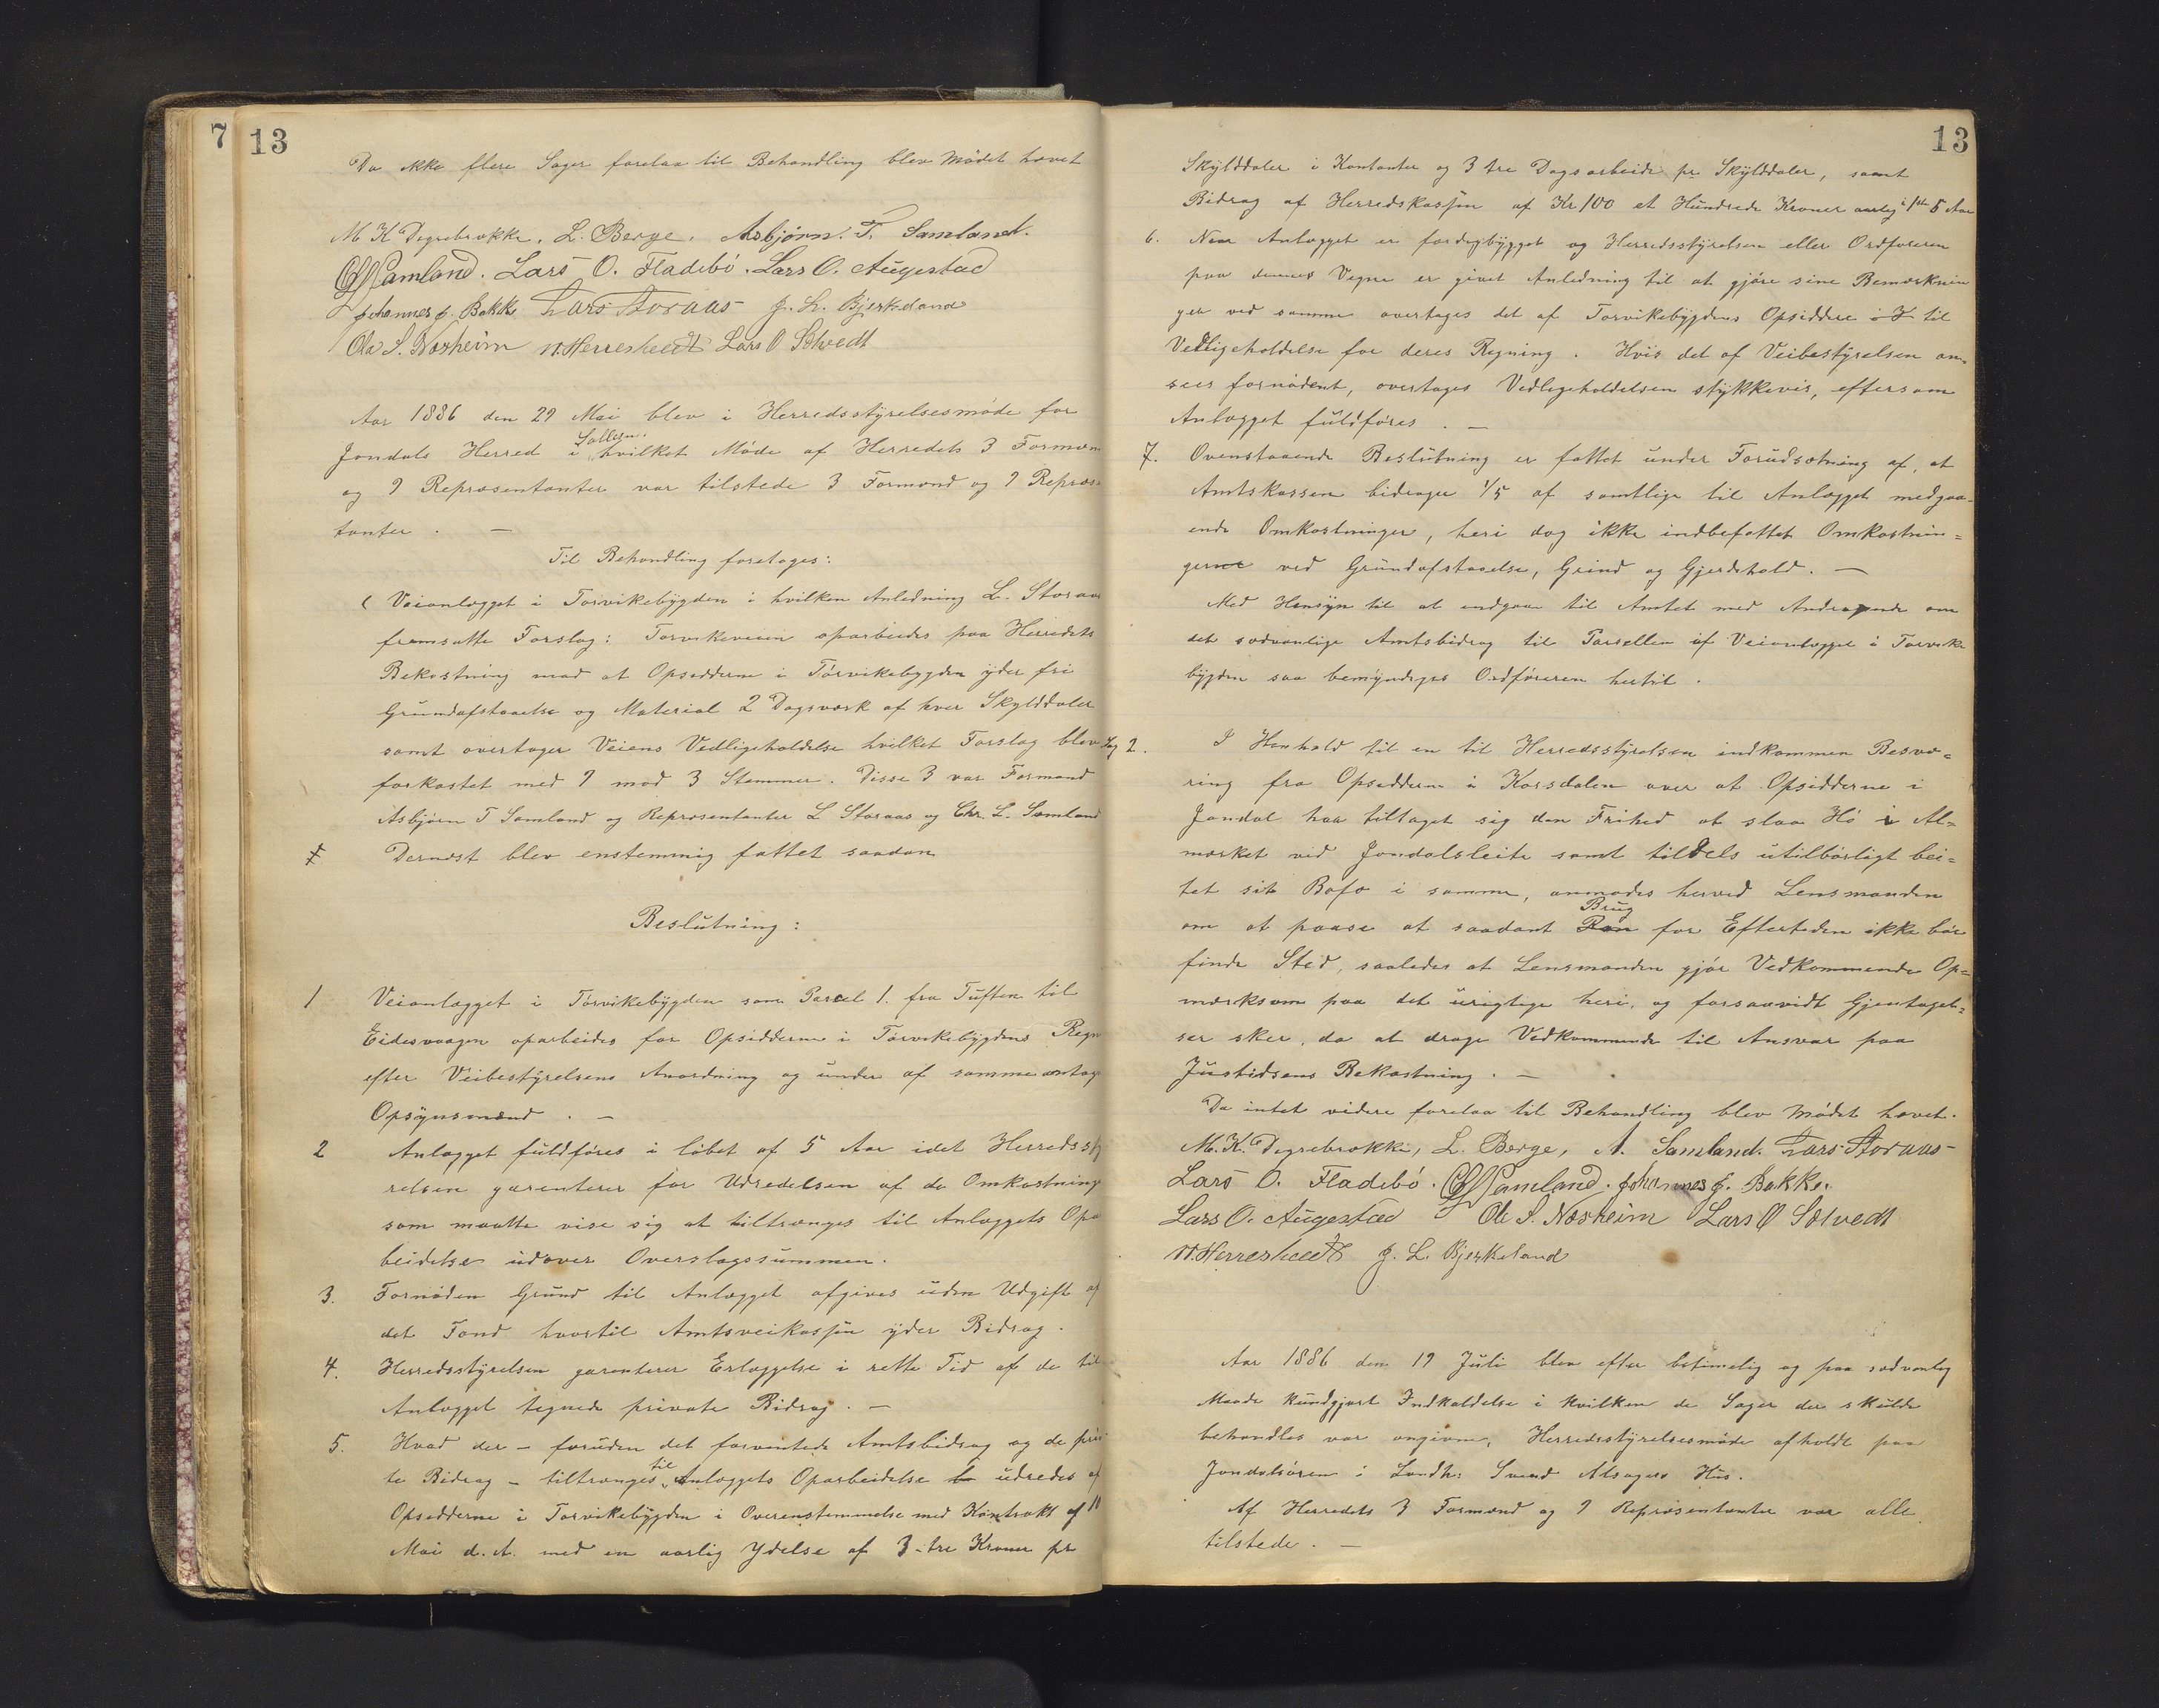 7 13
Da ikke flere Sager forelaa til Behandling blev Mödet hævet
M K Degrebrokke. L. Berge. Asbjörn. T. Samland.
Lars O. Fladebö. Lars O. Augestad
Johannes J. Bakke Lars Storaas J. L. Bjerkeland
Ola S. Næsheim N. Herresthedt Lars O Solvedt
Aar 1886 den 29 Mai blev i Herredsstyrelsesmöde for
Jondals Herred i Sollesn. hvilket Möde af Herredets 3 Formæn
og 9 Repræsentanter var tilstede 3 Formænd og 9 Repræs
tanter. —
Til Behandling foretoges:
Veianlægget i Torvikebygden i hvilken Anledning L. Storaas
fremsatte Forslag: Torvikeveien oparbeides paa Herredets
Bekostning mod at Opsidderne i Torvikebygden yder fri
Grundafstaaelse og Material 2 Dagsværk af hver Skylddaler
samt overtager Veiens Vedligeholdelse hvilket Forslag blev
forkastet med 9 mod 3 Stemmer. Disse 3 var Formand
Asbjörn T Samland og Repræsentanter L Storaas og Chr. L. Samland
Dernæst blev enstemmig fattet saadan
Beslutning:
1 Veianlægget i Torvikebygden som Parcel 1. fra Tuften til
Eidesvaagen oparbeides for Opsidderne i Torvikebygdens Regn
efter Veibestyrelsens Anordning og under af samme antag
Opsynsmænd. —
2 Anlægget fuldföres i löbet af 5 Aar idet Herredssty
relsen garenterer for Udredelsen af de Omkostning
som maatte vise sig at tiltrænges til Anlæggets Opa
beidelse udover Overslagssummen.
3. Fornöden Grund til Anlægget afgives uden Udgift af
det Fond hvortil Amtsveikassen yder Bidrag.
4. Herredsstyrelsen garenterer Erlæggelse i rette Tid af de til
Anlægget tegnede private Bidrag. —
5. Hvad der – foruden det forventede Amtsbidrag og de priv
te Bidrag – tiltrænges til Anlæggets Oparbeidelse udredes af
Opsidderne i Torvikebygden i Overenstemmelse med Kontrakt af 10
Mai d. A. med en aarlig Ydelse af 3-tre Kroner pr
13
Skylddaler i Kontanter og 3 tre Dagsarbeide pr Skylddaler, samt
Bidrag af Herredskassen af Kr 100 et Hundrede Kroner aarlig i 5 Aar
6. Naar Anlægget er færdigbygget og Herredsstyrelsen eller Ordföreren
paa dennes Vegne er givet Anledning til at gjöre sine Bemærknin
ger ved samme overtages det af Torvikebygdens Opsiddere til
Vedligeholdelse for deres Regning. Hvis det af Veibestyrelsen an-
sees fornödent, overtages Vedligeholdelsen stykkevis, eftersom
Anlægget fuldföres. —
7. Ovenstaaende Beslutning er fattet under Forudsætning af, at
Amtskassen bidrager 1/5 af samtlige til Anlægget medgaa-
ende Omkostninger, heri dog ikke indbefattet Omkostnin=
gerne ved Grundafstaaelse, Grind og Gjerdehold. —
Med Hensyn til at indgaa til Amtet med Andragende om
det sædvanlige Amtsbidrag til Parsellen af Veianlægget i Torvike
bygden saa bemyndiges Ordföreren hertil.
Sag 2. I Henhold til en til Herredsstyrelsen indkommen Besvæ=
ring fra Opsidderne i Korsdalen over at Opsidderne i
Jondal har tiltaget sig den Frihed at slaa Hö i Al=
mærket ved Jondalsleite samt tildels utilbörligt bei=
tet sit Bofæ i samme, anmodes herved Lensmanden
om at paase at saadant Brug for Eftertiden ikke bör
finde Sted, saaledes at Lensmanden gjör Vedkommende Op=
mærksom paa det urigtige heri, og forsaavidt Gjentagel=
ser sker, da at drage Vedkommende til Ansvar paa
Justidsens Bekostning. —
Da intet videre forelaa til Behandling blev Mödet hævet.
M. K. Degrebrokke, L. Berge, A. Samland. Lars Storaas
Lars O. Fladebö. Johannes J. Bakke.
Lars O. Augestad Ole S. Næsheim Lars O Solvedt
N. Herresthedt J. L. Bjerkeland
Aar 1886 den 19 Juli blev efter betimelig og paa sædvanlig
Maade kundgjort Indkaldelse i hvilken de Sager der skulde
behandles var angivne, Herredsstyrelsesmöde afholdt paa
Jondalsören i Landh. Svend Alsagers Hus.
Af Herredets 3 Formænd og 9 Repræsentanter var alle
tilstede. —